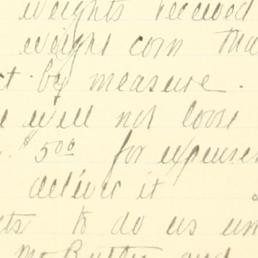 weights received
weight corn tha
t by measure.
e will not loose
$5.00 for expenses
deliver it
ts to do us un
Mr Butler and